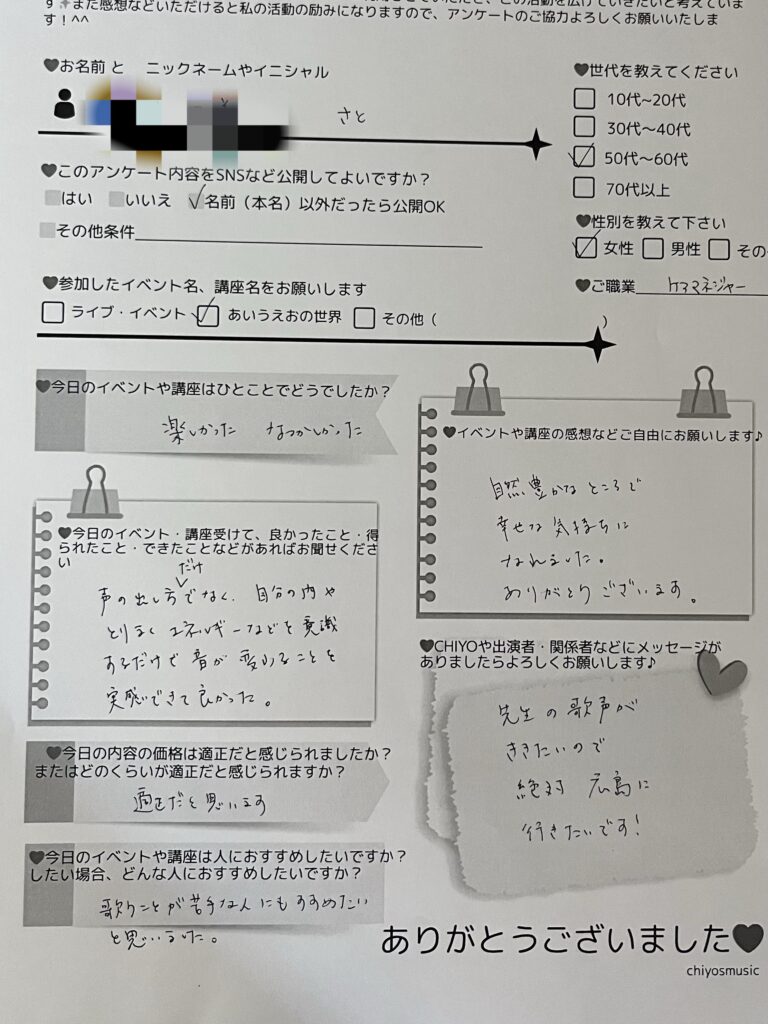 また感想などいただけると私の活動の励みになりますので、アンケートのご協力よろしくお願いいたしま
す！^^
♥お名前 と ニックネームやイニシャル
さと
♥このアンケート内容をSNSなど公開してよいですか？
はい いいえ ✓名前（本名）以外だったら公開OK
その他条件
♥世代を教えてください
10代~20代
30代〜40代
✓50代〜60代
70代以上
♥性別を教えて下さい
✓女性 男性 その
♥ご職業 ケアマネジャー
♥参加したイベント名、講座名をお願いします
ライブ・イベント ✓あいうえおの世界 その他（ ）
♥今日のイベントや講座はひとことでどうでしたか？
楽しかった なつかしかった
♥今日のイベント・講座受けて、良かったこと・得
られたこと・できたことなどがあればお聞せくださ
い
だけ
声の出し方でなく、自分の内や
とりまくエネルギーなどを意識
するだけで音が変わることを
実感できて良かった。
♥今日の内容の価格は適正だと感じられましたか？
またはどのくらいが適正だと感じられますか？
適正だと思います
♥今日のイベントや講座は人におすすめしたいですか？
したい場合、どんな人におすすめしたいですか？
歌うことが苦手な人にもすすめたい
と思いました。
♥イベントや講座の感想などご自由にお願いします♪
自然豊かなところで
幸せな気持ちに
なれました。
ありがとうございます。
♥CHIYOや出演者・関係者などにメッセージが
ありましたらよろしくお願いします♪
先生の歌声が
ききたいので
絶対 広島に
行きたいです！
ありがとうございました♥
chiyosmusic